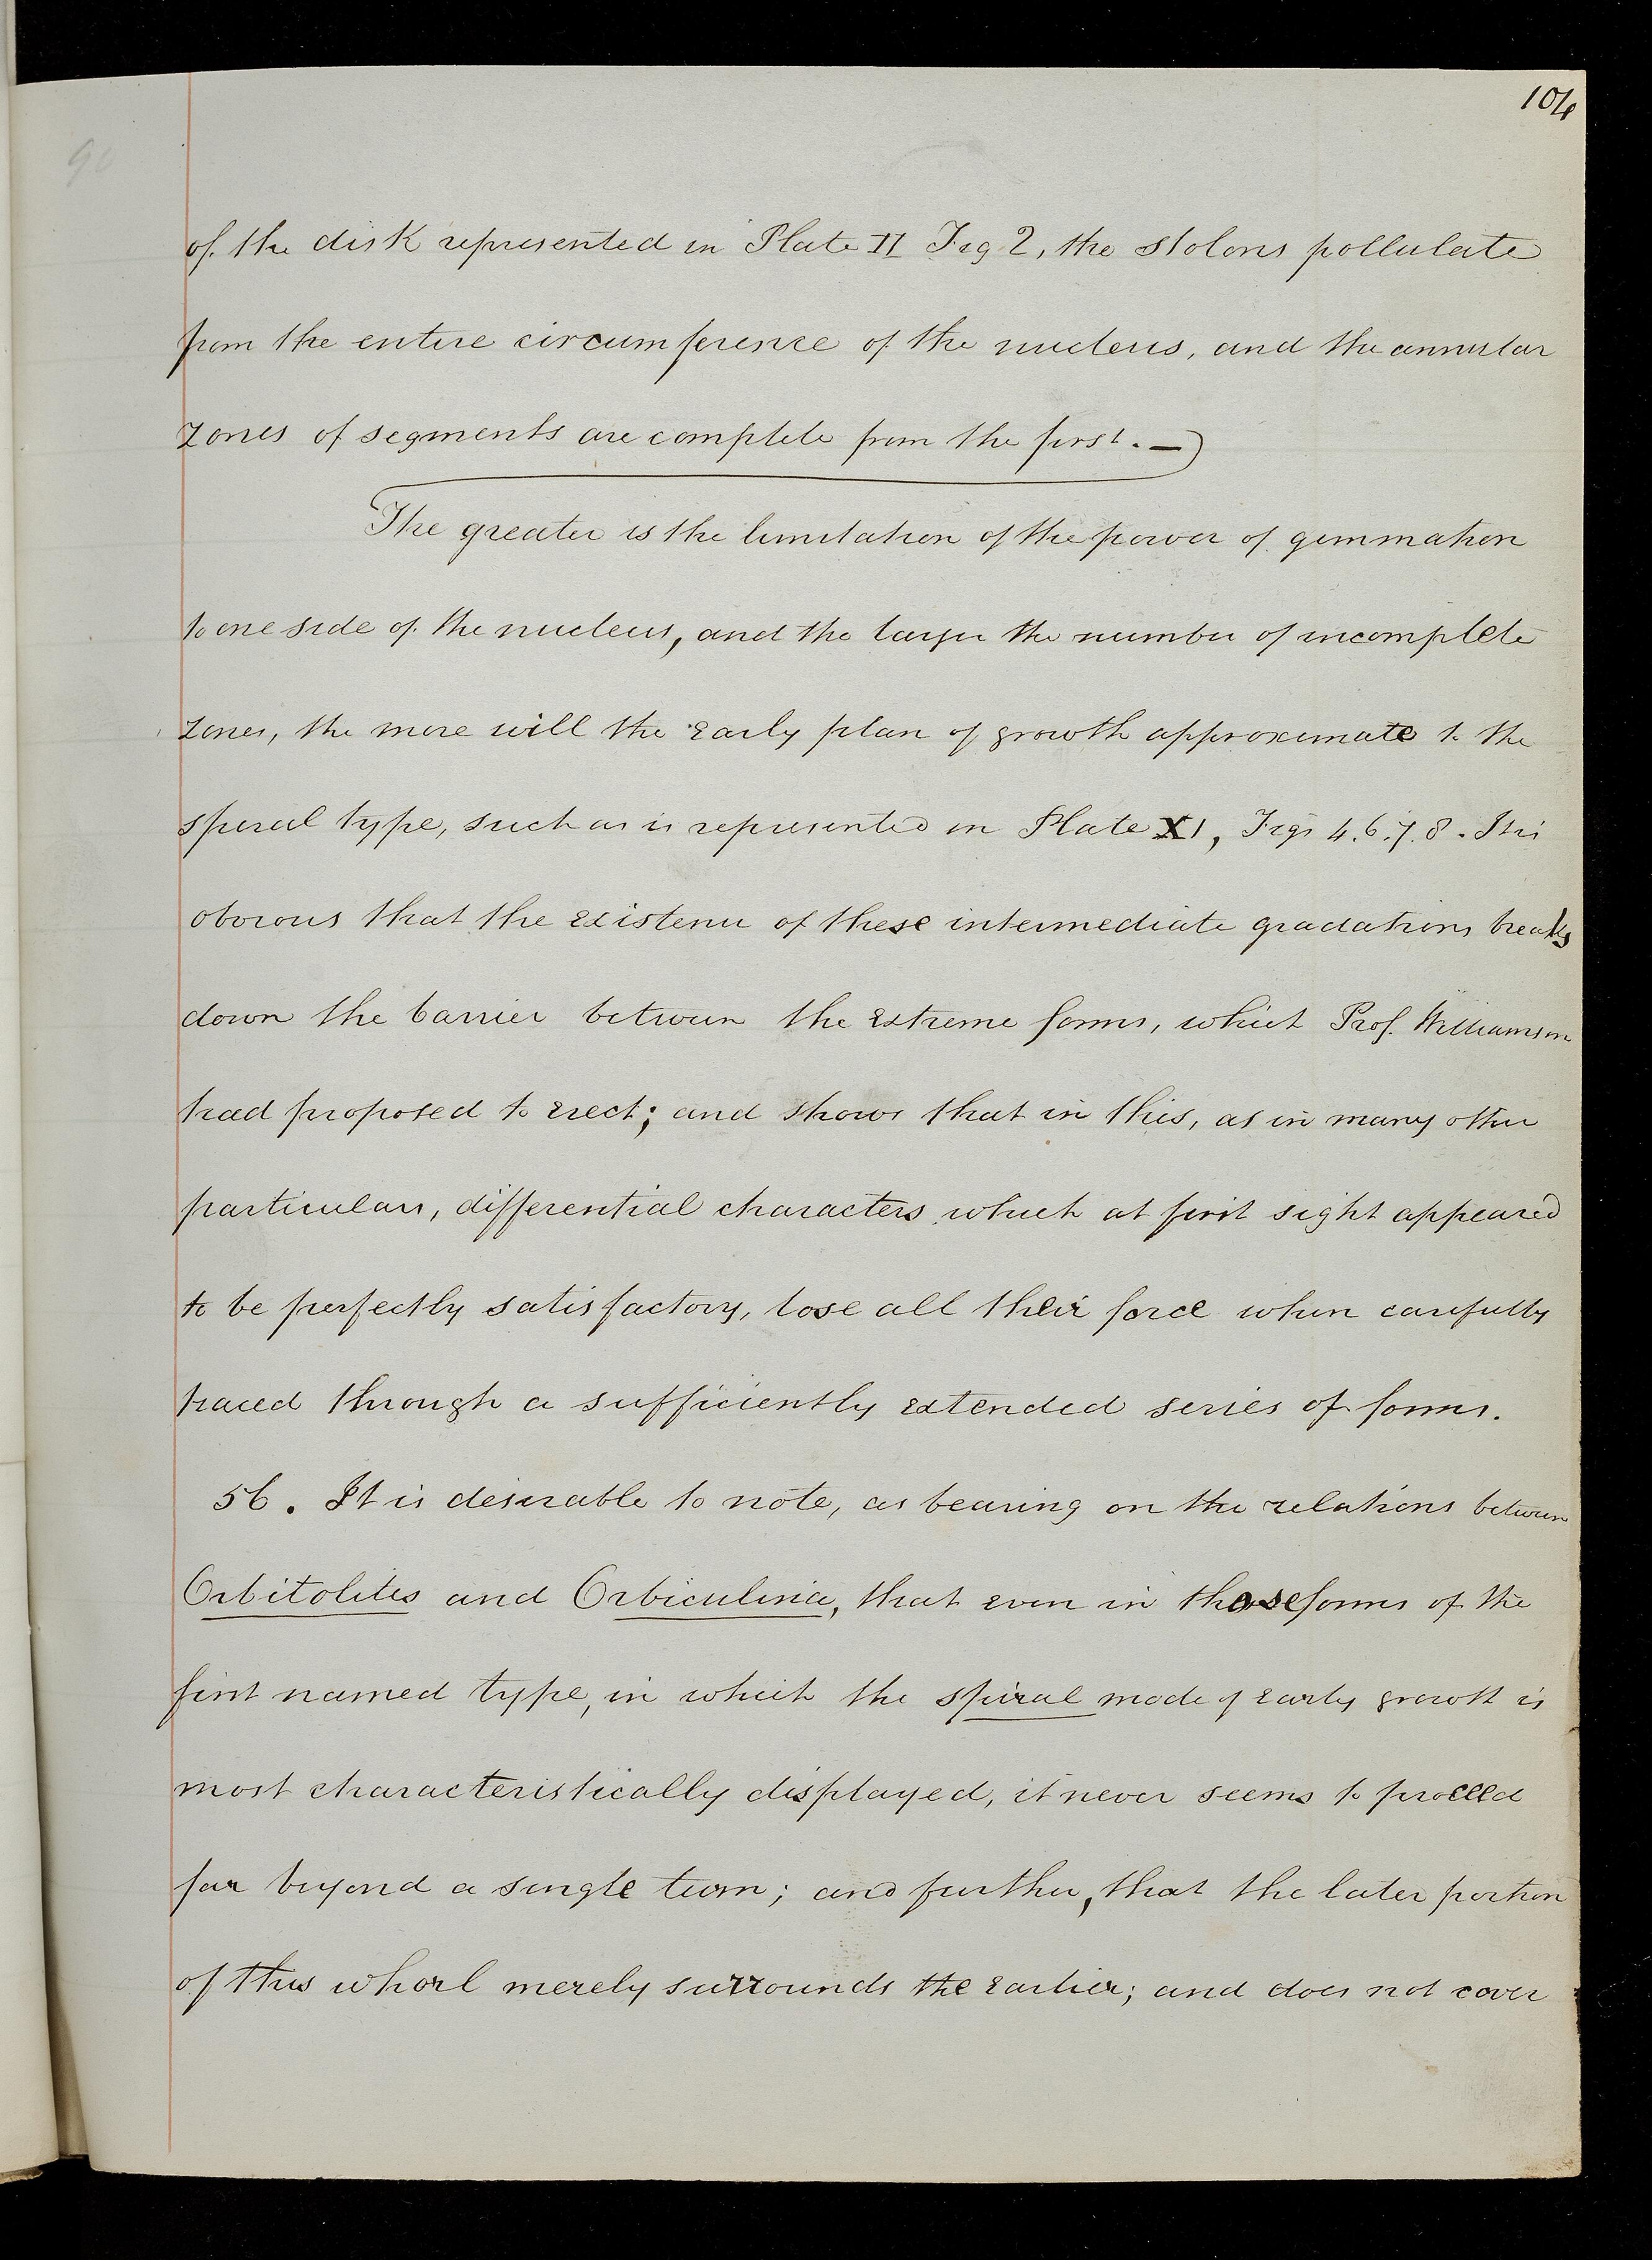 104
90
of the disk represented in Plate II Fig 2, the stolons pollulate
from the entire circumference of the nucleus, and the annular
zones of segments are complete from the first. —
The greater is the limitation of the power of gemmation
to one side of the nucleus, and the larger the number of incomplete
zones, the more will the early plan of growth approximate to the
spiral type, such as is represented in Plate XI, Figs 4. 6. 7. 8. It is
obvious that the existence of these intermediate gradations breaks
down the barrier between the extreme forms, which Prof. Williamson
had proposed to erect; and shows that in this, as in many other
particulars, differential characters which at first sight appeared
to be perfectly satisfactory, lose all their force when carefully
traced through a sufficiently extended series of forms.
56. It is desirable to note, as bearing on the relations between
Orbitolites and Orbiculina, that even in those forms of the
first named type, in which the spiral mode of early growth is
most characteristically displayed, it never seems to proceed
far beyond a single turn; and further, that the later portion
of this whorl merely surrounds the earlier; and does not cover